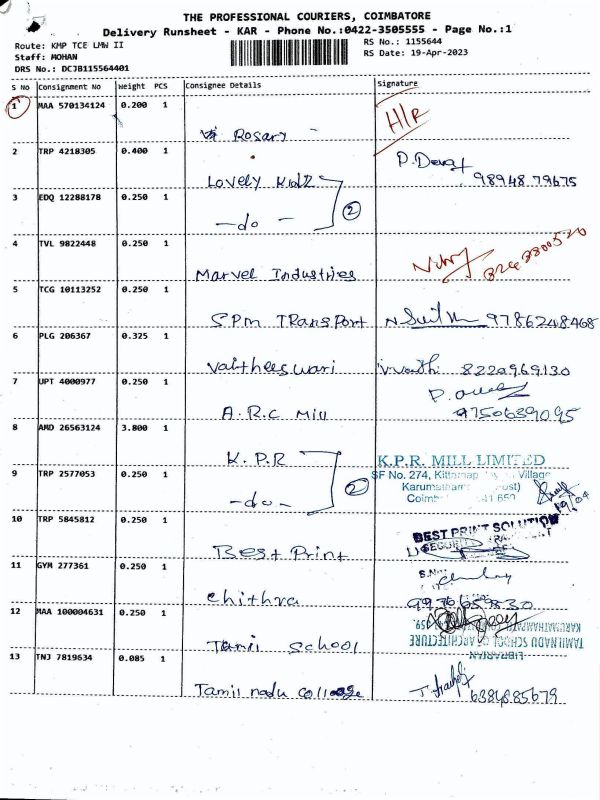 THE PROFESSIONAL COURIERS, COIMBATORE
Delivery Runsheet - KAR - Phone No.:0422-3505555 - Page No.:1
Route: KMP TCE LMW II
RS No.: 1155644
Staff: MOHAN
RS Date: 19-Apr-2023
DRS No.: DCJB115564401
S No Consignment No Weight PCS Consignee Details Signature
1 MAA 570134124 0.200 1
Rosary H/R
2 TRP 4218305 0.400 1
Lovely Kidz 98948 79675
3 EDQ 12288178 0.250 1
-do- 2
4 TVL 9822448 0.250 1
Marvel Industries
5 TCG 10113252 0.250 1
SPM Transport 9786248468
6 PLG 206367 0.325 1
Vaitheeswari 8220969130
7 UPT 4000977 0.250 1
A.R.C Mill 9750639095
8 AMD 26563124 3.800 1
K.P.R K.P.R. MILL LIMITED
9 TRP 2577053 0.250 1
SF No. 274, Village
-do- 2
10 TRP 5845812 0.250 1
BEST PRINT SOLUTION
Best Print
11 GYM 277361 0.250 1
Chithra
12 MAA 100004631 0.250 1
TAMILNADU SCHOOL OF ARCHITECTURE
Tamil School
LIBRARIAN
13 TNJ 7819634 0.085 1
Tamil nadu College 6384885679